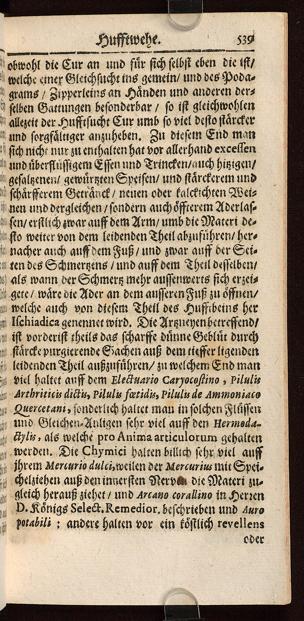 Hufftwehe. 539
obwohl die Cur an und für sich selbst eben die ist/
welche einer Gleichsucht ins gemein/ und des Poda-
grams/ Zipperleins an Händen und anderen der-
selben Gattungen besonderbar/ so ist gleichwohlen
allezeit der Hufftsucht Cur umb so viel desto stärcker
und sorgfältiger anzuheben. Zu diesem End man
sich nicht nur zu enthalten hat vor allerhand excessen
und überflüssigem Essen und Trincken/ auch hizigen/
gesaltzenen/ gewürtzten Speisen/ und stärckerem und
schärfferem Geträncke/ neuen oder kalckichten Wei-
nen und dergleichen/ sondern auch öffterem Aderlas-
sen/ erstlich zwar auff dem Arm/ umb die Materi de-
sto weiter von dem leidenden Theil abzuführen/ her-
nacher auch auff dem Fuß/ und zwar auff der Sei-
ten des Schmertzens/ und auff dem Theil desselben/
als wann der Schmertz mehr aussenwerts sich erzei-
gete/ wäre die Ader an dem ausseren Fuß zu öffnen/
welche auch von diesem Theil des Huffbeins her
Ischiadica genennet wird. Die Artzneyen betreffend/
ist vorderist theils das scharffe dünne Geblüt durch
stärcke purgierende Sachen auß dem tieffer ligenden
leidenden Theil außzuführen/ zu welchem End man
viel haltet auff dem Electuario Caryocostino, Pilulis
Arthriticis dictis, Pilulis fœtidis, Pilulis de Ammoniaco
Quercetani, sonderlich haltet man in solchen Flüssen
und Gleichen-Anligen sehr viel auff den Hermoda-
ctylis, als welche pro Anima articulorum gehalten
werden. Die Chymici halten billich sehr viel auff
ihrem Mercurio dulci, weilen der Mercurius mit Spei-
chelziehen auß den innersten Nerven die Materi zu-
gleich herauß ziehet/ und Arcano corallino in Herren
D. Königs Select. Remedior. beschrieben und Auro
potabili: andere halten vor ein köstlich revellens
oder